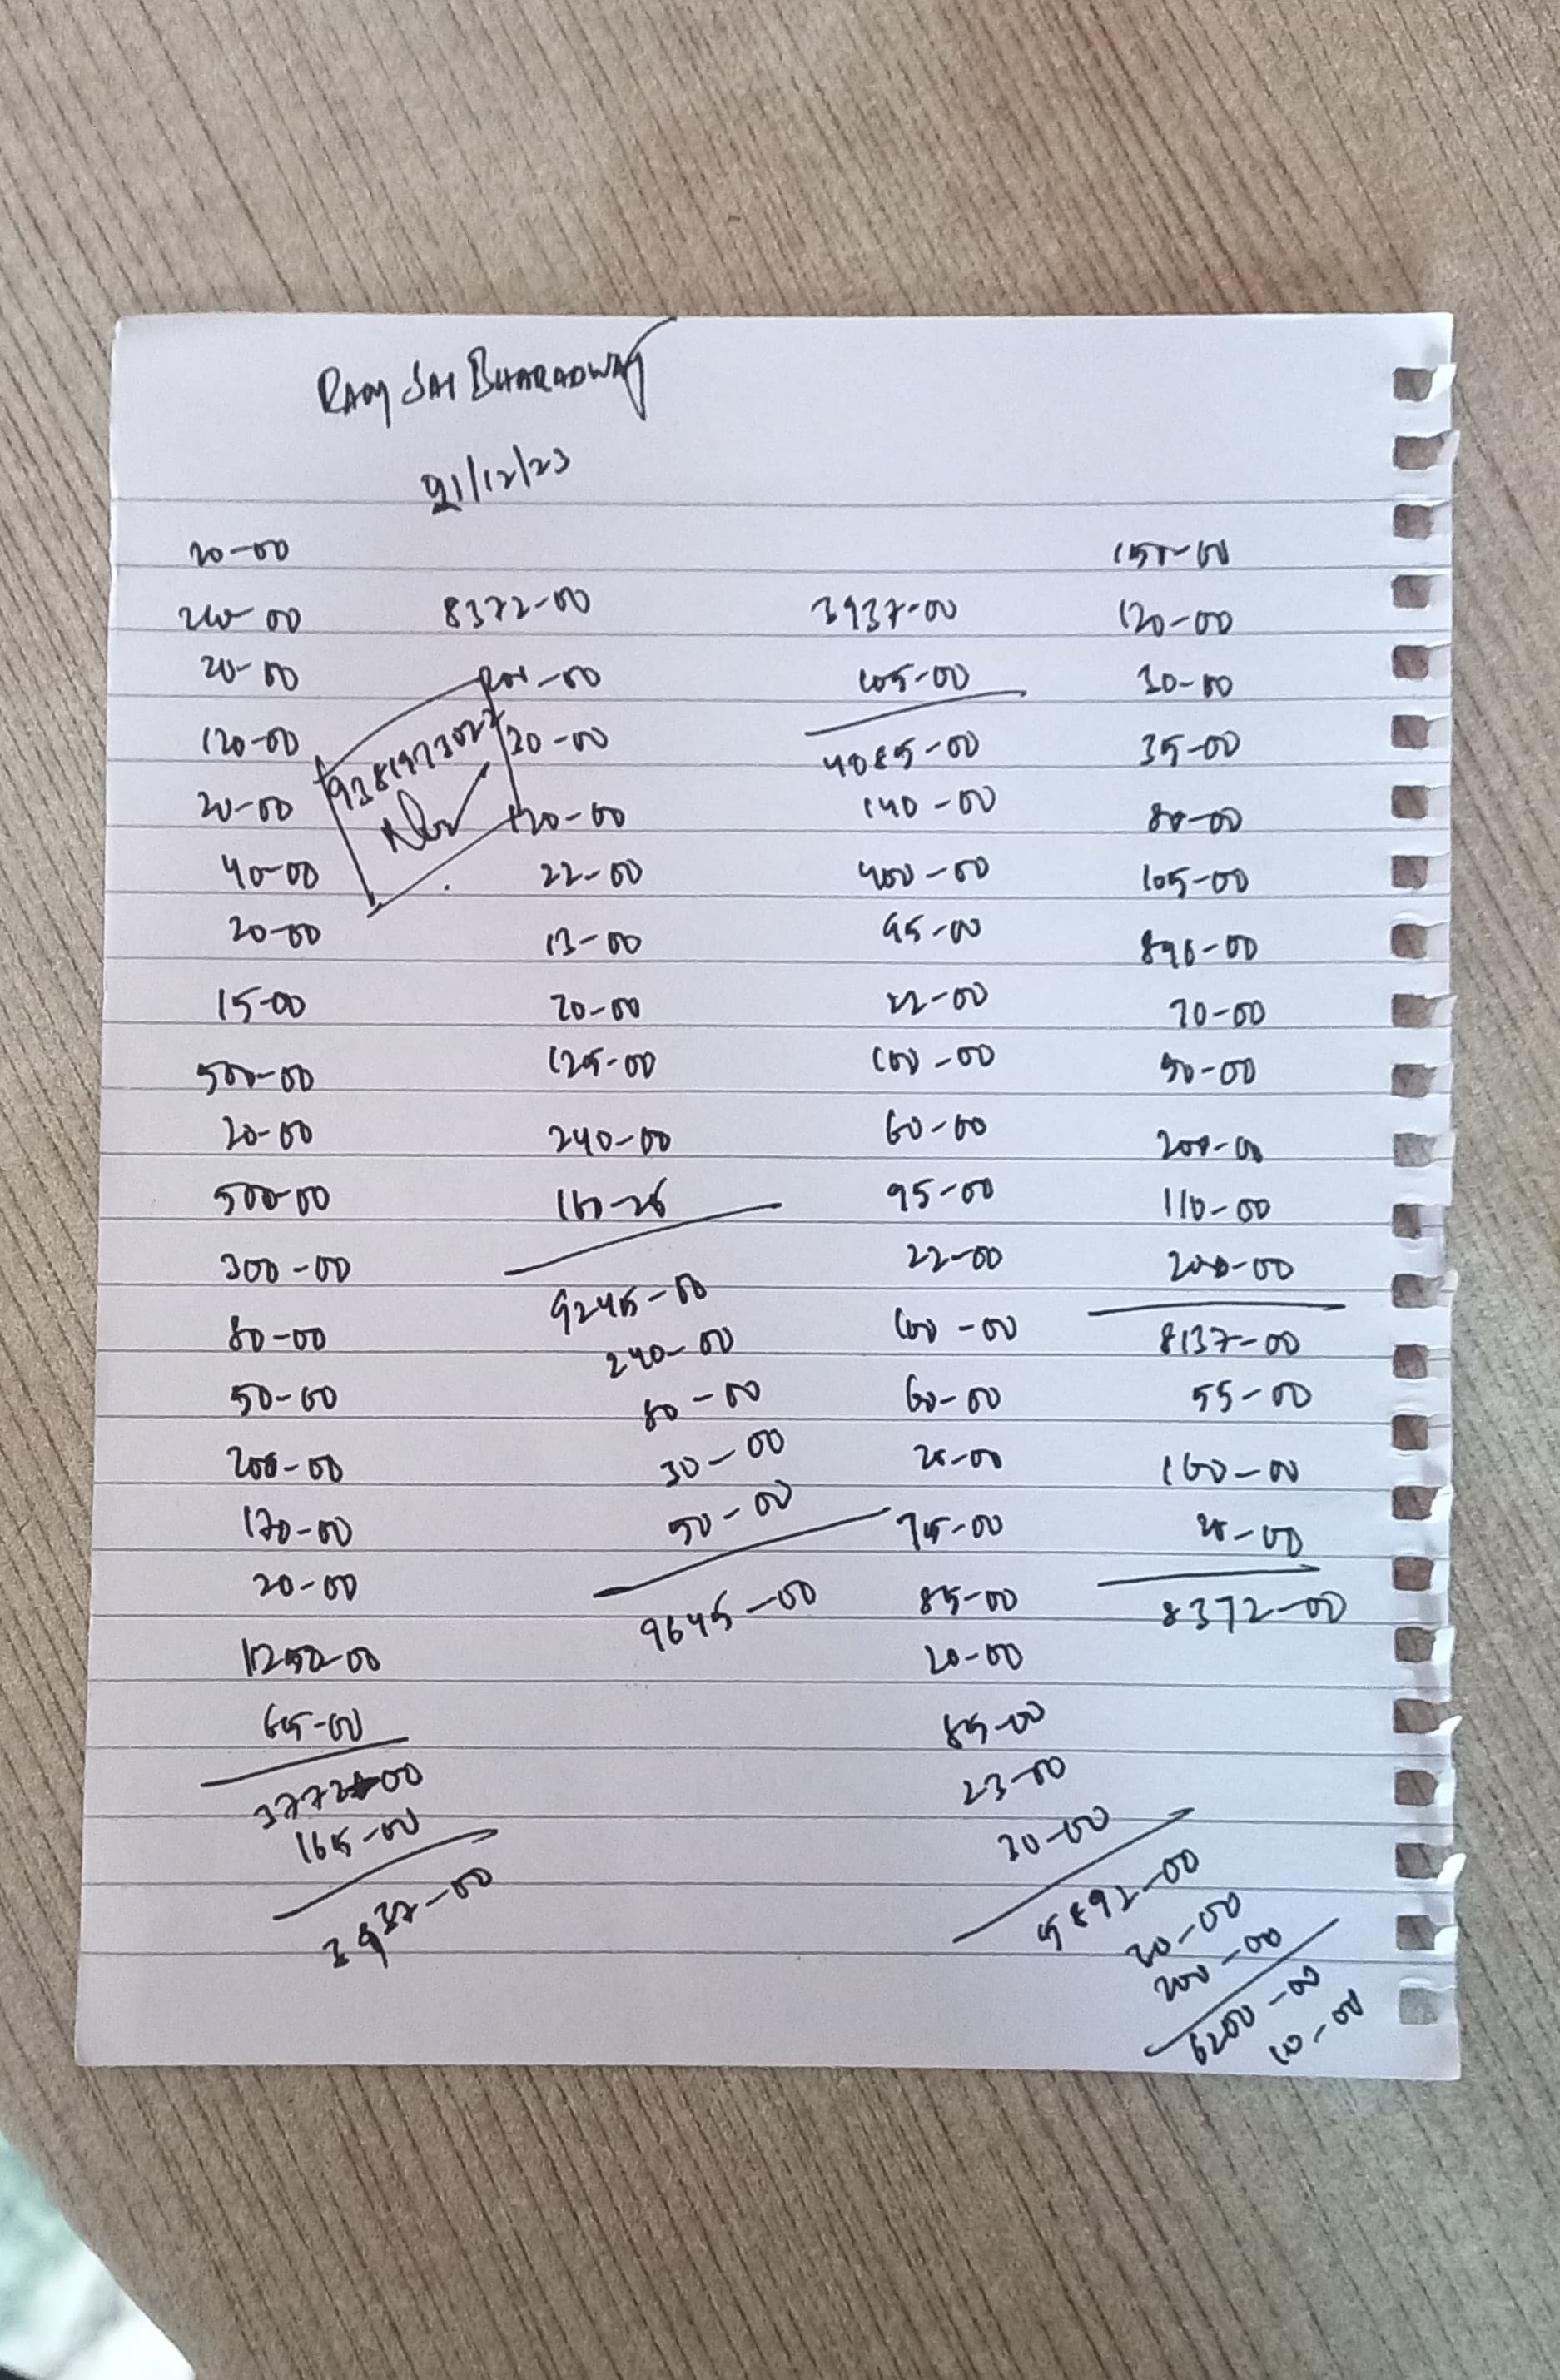 RAM SAI BHARADWAJ
21/12/23
20-00
240-00
20-00
120-00
20-00
40-00
20-00
15-00
500-00
20-00
500-00
300-00
80-00
50-00
200-00
170-00
20-00
1250-00
65-00
3772-00
165-00
3937-00
8372-00
-00
20-00
120-00
22-00
13-00
20-00
125-00
240-00
9245-00
240-00
80-00
30-00
50-00
9645-00
3937-00
105-00
4085-00
140-00
400-00
95-00
22-00
100-00
60-00
95-00
22-00
100-00
60-00
75-00
85-00
20-00
85-00
23-00
30-00
5892-00
20-00
200-00
6200-00
10-00
150-00
120-00
30-00
35-00
80-00
105-00
896-00
70-00
50-00
200-00
110-00
200-00
8137-00
55-00
160-00
8372-00